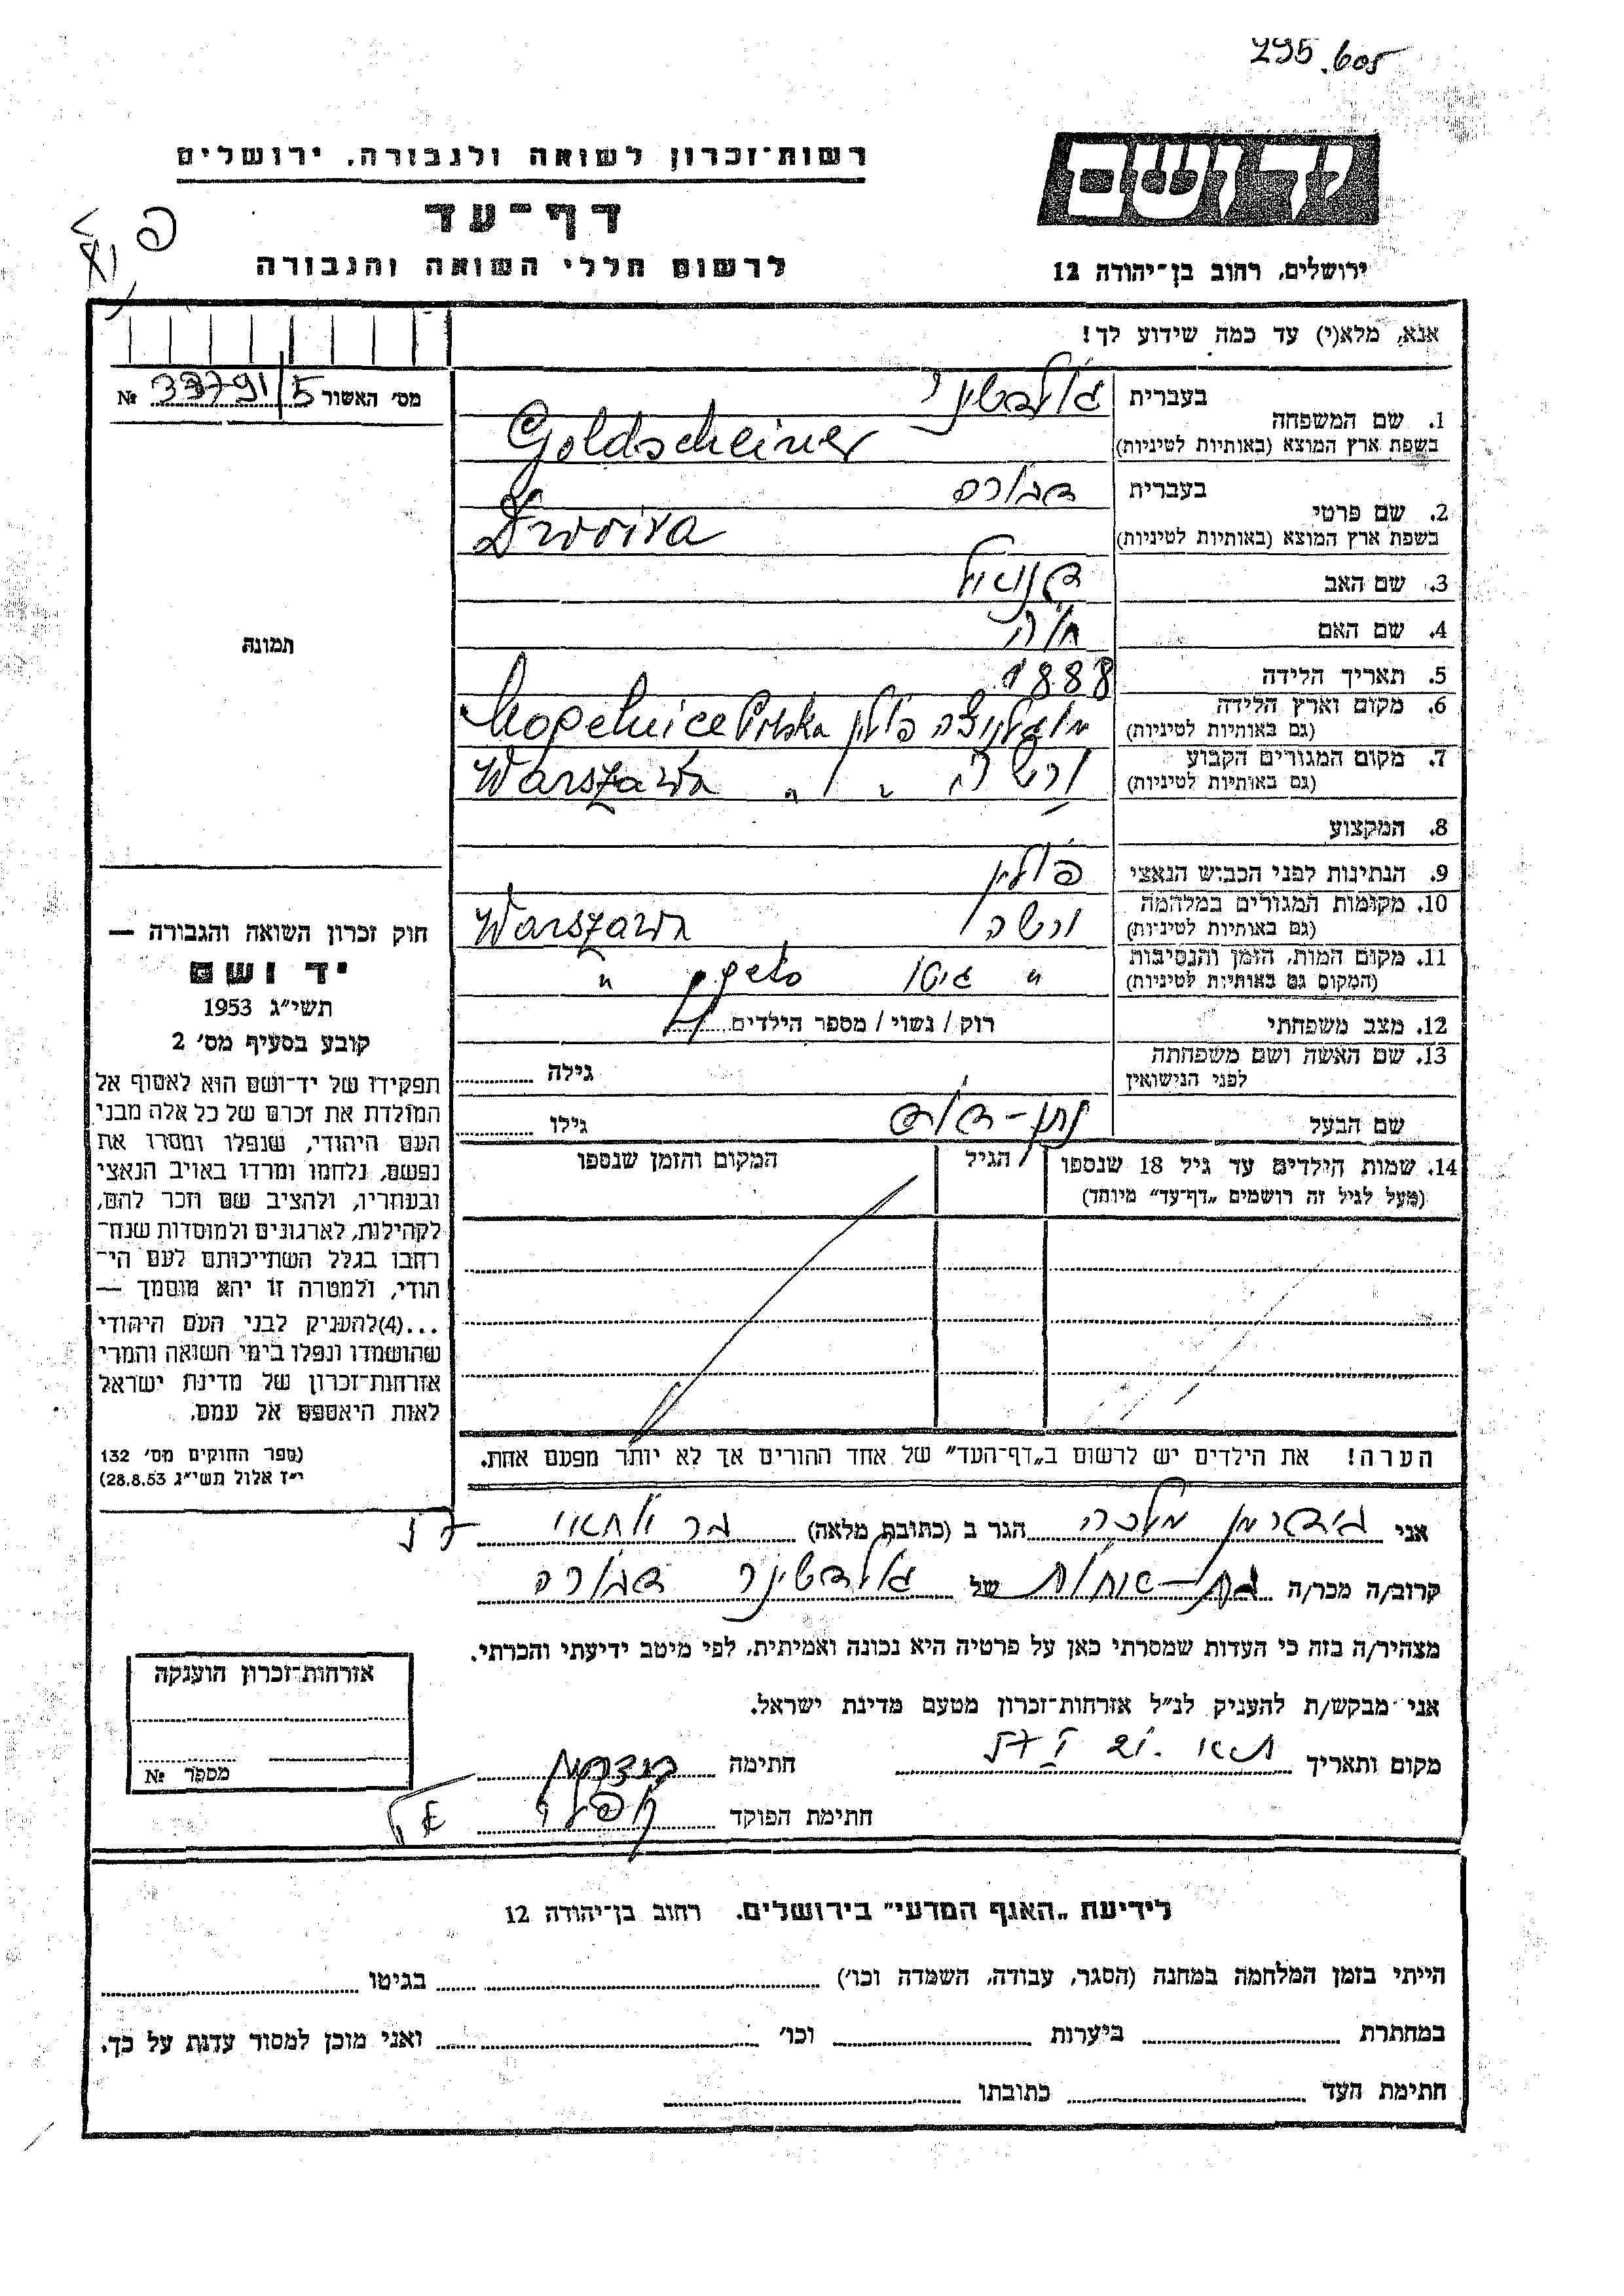 295.605
ידושם
רשות־זכרון לשואה ולגבורה, ירושלים
דף־עד
לרשום חללי השואה והגבורה
ירושלים, רחוב בן־יהודה 12
אנא, מלא(י) עד כמה שידוע לך!
מס׳ האשור 5/33791 №
1. שם המשפחה
בעברית
בשפת ארץ המוצא (באותיות לטיניות) Goldscheiner
2. שם פרטי
בעברית דבורה
בשפת ארץ המוצא (באותיות לטיניות) Dwoira
3. שם האב דניאל
4. שם האם חיה
5. תאריך הלידה 1888
6. מקום וארץ הלידה
(גם באותיות לטיניות) פולין Polska Mopelnice
7. מקום המגורים הקבוע
(גם באותיות לטיניות) ורשה " " Warszawa
8. המקצוע
9. הנתינות לפני הכבוש הנאצי פולין
10. מקומות המגורים במלחמה
(גם באותיות לטיניות) ורשה Warszawa
11. מקום המות, הזמן והנסיבות
(המקום גם באותיות לטיניות) " גיטו geto "
12. מצב משפחתי רוק / נשוי / מספר הילדים 4
13. שם האשה ושם משפחתה
לפני הנישואין
גילה
שם הבעל נתן-דוד
גילו
14. שמות הילדים עד גיל 18 שנספו
(מעל לגיל זה רושמים „דף־עד״ מיוחד)
הגיל
המקום והזמן שנספו
הערה! את הילדים יש לרשום ב„דף־העד״ של אחד ההורים אך לא יותר מפעם אחת.
תמונה
חוק זכרון השואה והגבורה —
יד ושם
תשי״ג 1953
קובע בסעיף מס׳ 2
תפקידו של יד־ושם הוא לאסוף אל
המולדת את זכרם של כל אלה מבני
העם היהודי, שנפלו ומסרו את
נפשם, נלחמו ומרדו באויב הנאצי
ובעוזריו, ולהציב שם וזכר להם,
לקהילות, לארגונים ולמוסדות שנח־
רבו בגלל השתייכותם לעם הי־
הודי, ולמטרה זו יהא מוסמך —
...(4)להעניק לבני העם היהודי
שהושמדו ונפלו בימי השואה והמרי
אזרחות־זכרון של מדינת ישראל
לאות היאספם אל עמם.
(ספר החוקים מס׳ 132
י״ז אלול תשי״ג 28.8.53)
אני מלכה הגר ב (כתובת מלאה)
קרוב/ה מכר/ה בת-אחות של גולדשינר דבורה
מצהיר/ה בזה כי העדות שמסרתי כאן על פרטיה היא נכונה ואמיתית, לפי מיטב ידיעתי והכרתי.
אני מבקש/ת להעניק לנ״ל אזרחות־זכרון מטעם מדינת ישראל.
מקום ותאריך
חתימה
חתימת הפוקד
אזרחות־זכרון הוענקה
מספר №
לידיעת „האגף המדעי״ בירושלים. רחוב בן־יהודה 12
הייתי בזמן המלחמה במחנה (הסגר, עבודה, השמדה וכו׳) בגיטו
במחתרת ביערות וכו׳ ואני מוכן למסור עדות על כך.
חתימת העד כתובתו